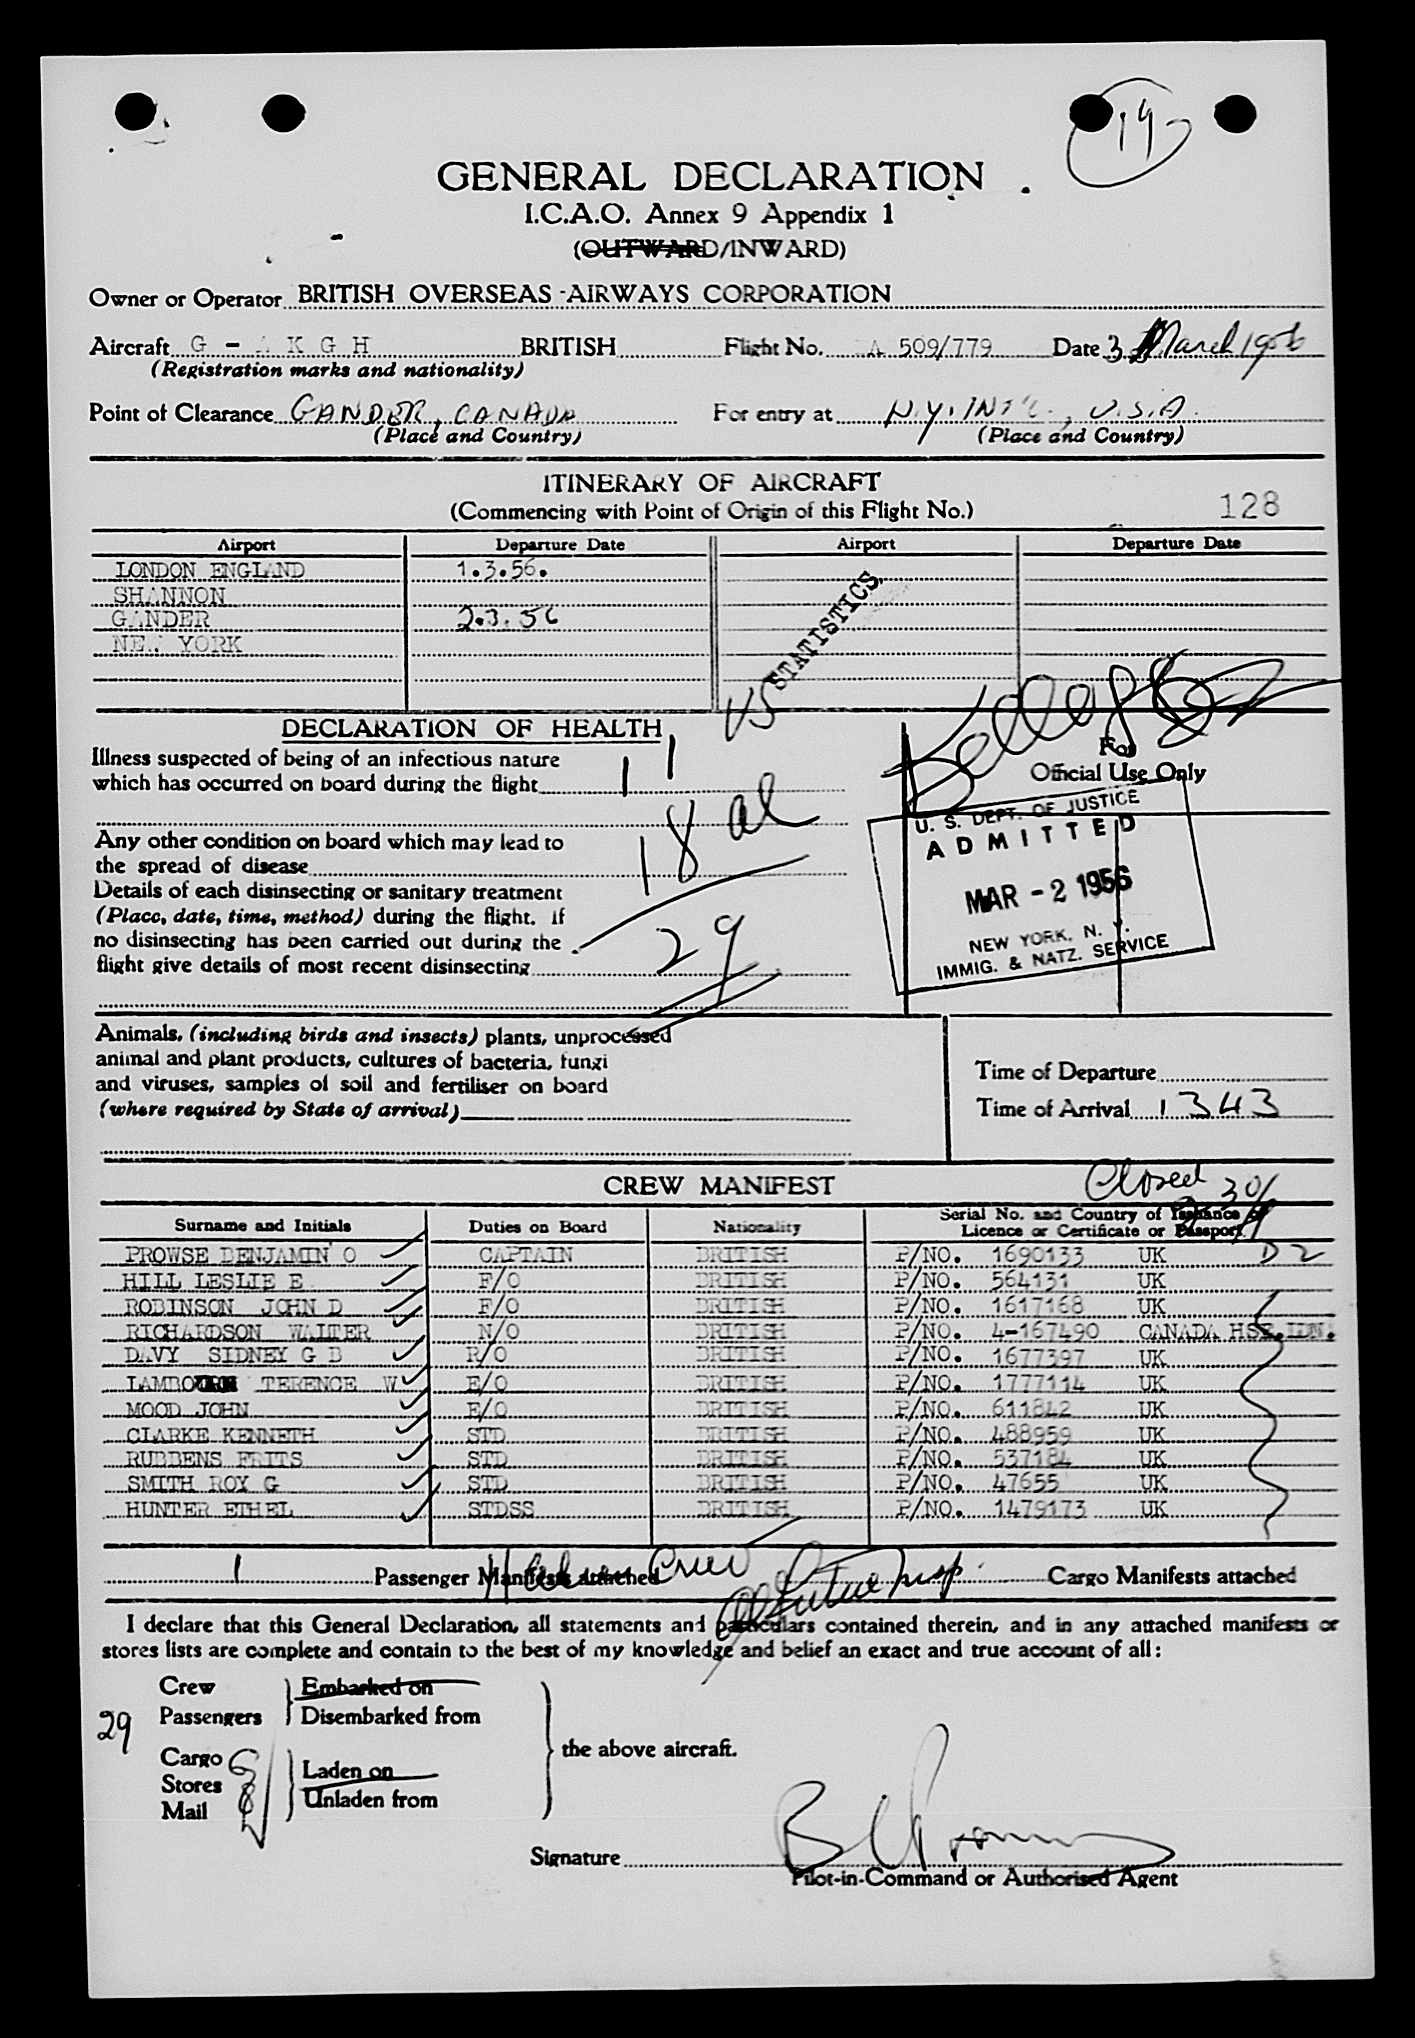 19
GENERAL DECLARATION
I.C.A.O. Annex 9 Appendix 1
(OUTWARD/INWARD)
Owner or Operator BRITISH OVERSEAS AIRWAYS CORPORATION
Aircraft G - A K G H BRITISH Flight No. A 509/779 Date 3 March 1956
(Registration marks and nationality)
Point of Clearance GANDER, CANADA For entry at N.Y. INT'L., U.S.A.
(Place and Country) (Place and Country)
ITINERARY OF AIRCRAFT
(Commencing with Point of Origin of this Flight No.) 128
Airport Departure Date Airport Departure Date
LONDON ENGLAND 1.3.56.
SHANNON
GANDER 2.3.56
NEW YORK
US STATISTICS
DECLARATION OF HEALTH
Illness suspected of being of an infectious nature
which has occurred on board during the flight
11
18 al
29
For
Official Use Only
U. S. DEPT. OF JUSTICE
ADMITTED
MAR - 2 1956
NEW YORK, N. Y.
IMMIG. & NATZ. SERVICE
Any other condition on board which may lead to
the spread of disease
Details of each disinsecting or sanitary treatment
(Place, date, time, method) during the flight. If
no disinsecting has been carried out during the
flight give details of most recent disinsecting
Animals, (including birds and insects) plants, unprocessed
animal and plant products, cultures of bacteria, fungi
and viruses, samples of soil and fertiliser on board
(where required by State of arrival)
Time of Departure
Time of Arrival 1343
CREW MANIFEST Closed 30/
Surname and Initials Duties on Board Nationality Serial No. and Country of Issuance of
Licence or Certificate or Passport
PROWSE BENJAMIN O CAPTAIN BRITISH P/NO. 1690133 UK D2
HILL LESLIE E F/O BRITISH P/NO. 564131 UK
ROBINSON JOHN D F/O BRITISH P/NO. 1617168 UK
RICHARDSON WALTER N/O BRITISH P/NO. 4-167490 CANADA HSE.LDN.
DAVY SIDNEY G B R/O BRITISH P/NO. 1677397 UK
LAMBOURN TERENCE W E/O BRITISH P/NO. 1777114 UK
MOOD JOHN E/O BRITISH P/NO. 611842 UK
CLARKE KENNETH STD BRITISH P/NO. 488959 UK
RUBBENS FRITS STD BRITISH P/NO. 537184 UK
SMITH ROY G STD BRITISH P/NO. 47655 UK
HUNTER ETHEL STDSS BRITISH P/NO. 1479173 UK
1 Passenger Manifests attached Cargo Manifests attached
Crew
I declare that this General Declaration, all statements and particulars contained therein, and in any attached manifests or
stores lists are complete and contain to the best of my knowledge and belief an exact and true account of all:
Crew Embarked on
29 Passengers Disembarked from
the above aircraft.
Cargo Laden on
Stores
Mail Unladen from
Signature
Pilot-in-Command or Authorised Agent